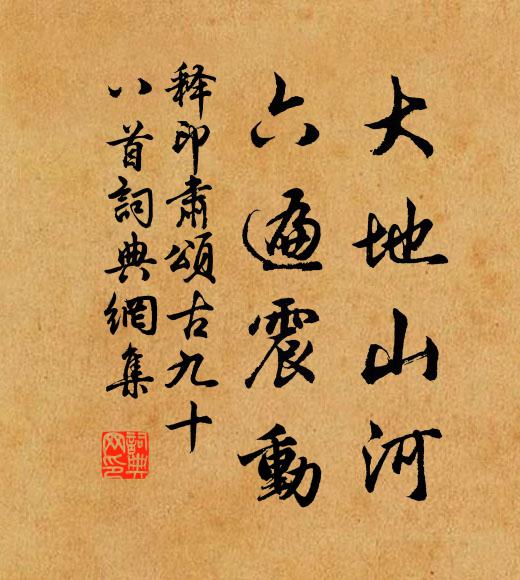 大地山河
六遍震動
释印肃頌古九十
八首詞典網集
詞典
网印